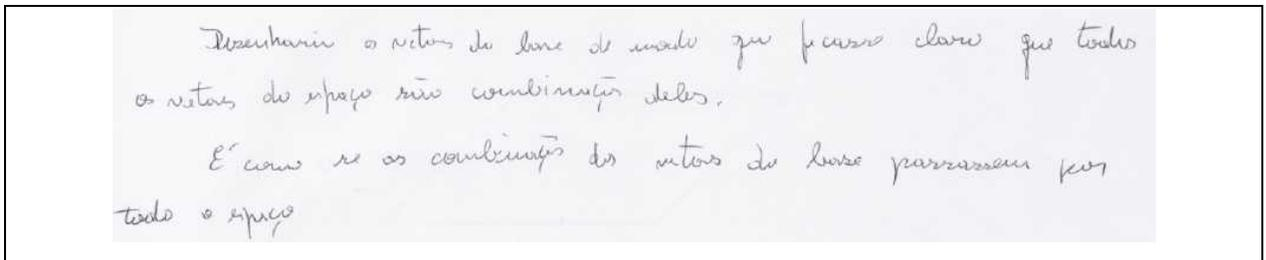 Desenharia os vetores da base de modo que ficasse claro que todos
os vetores do espaço são combinações deles.
É como se as combinações dos vetores da base passassem por
todo o espaço